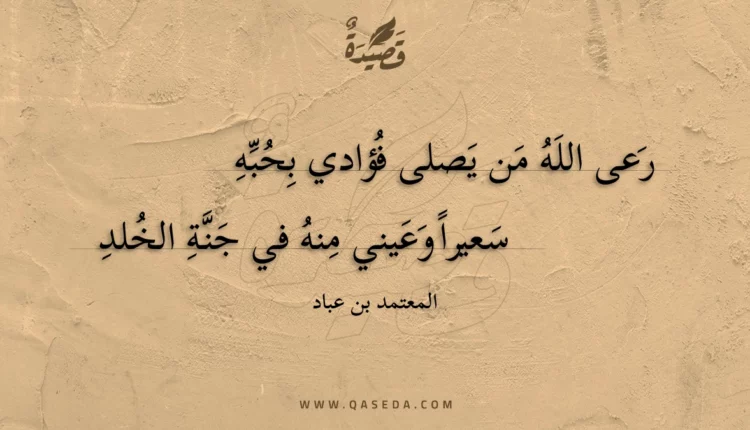 قَصِيدَةٌ
رَعى اللَهُ مَن يَصلى فُؤادي بِحُبِّهِ
سَعيراً وَعَيني مِنهُ في جَنَّةِ الخُلدِ
المعتمد بن عباد
WWW.QASEDA.COM